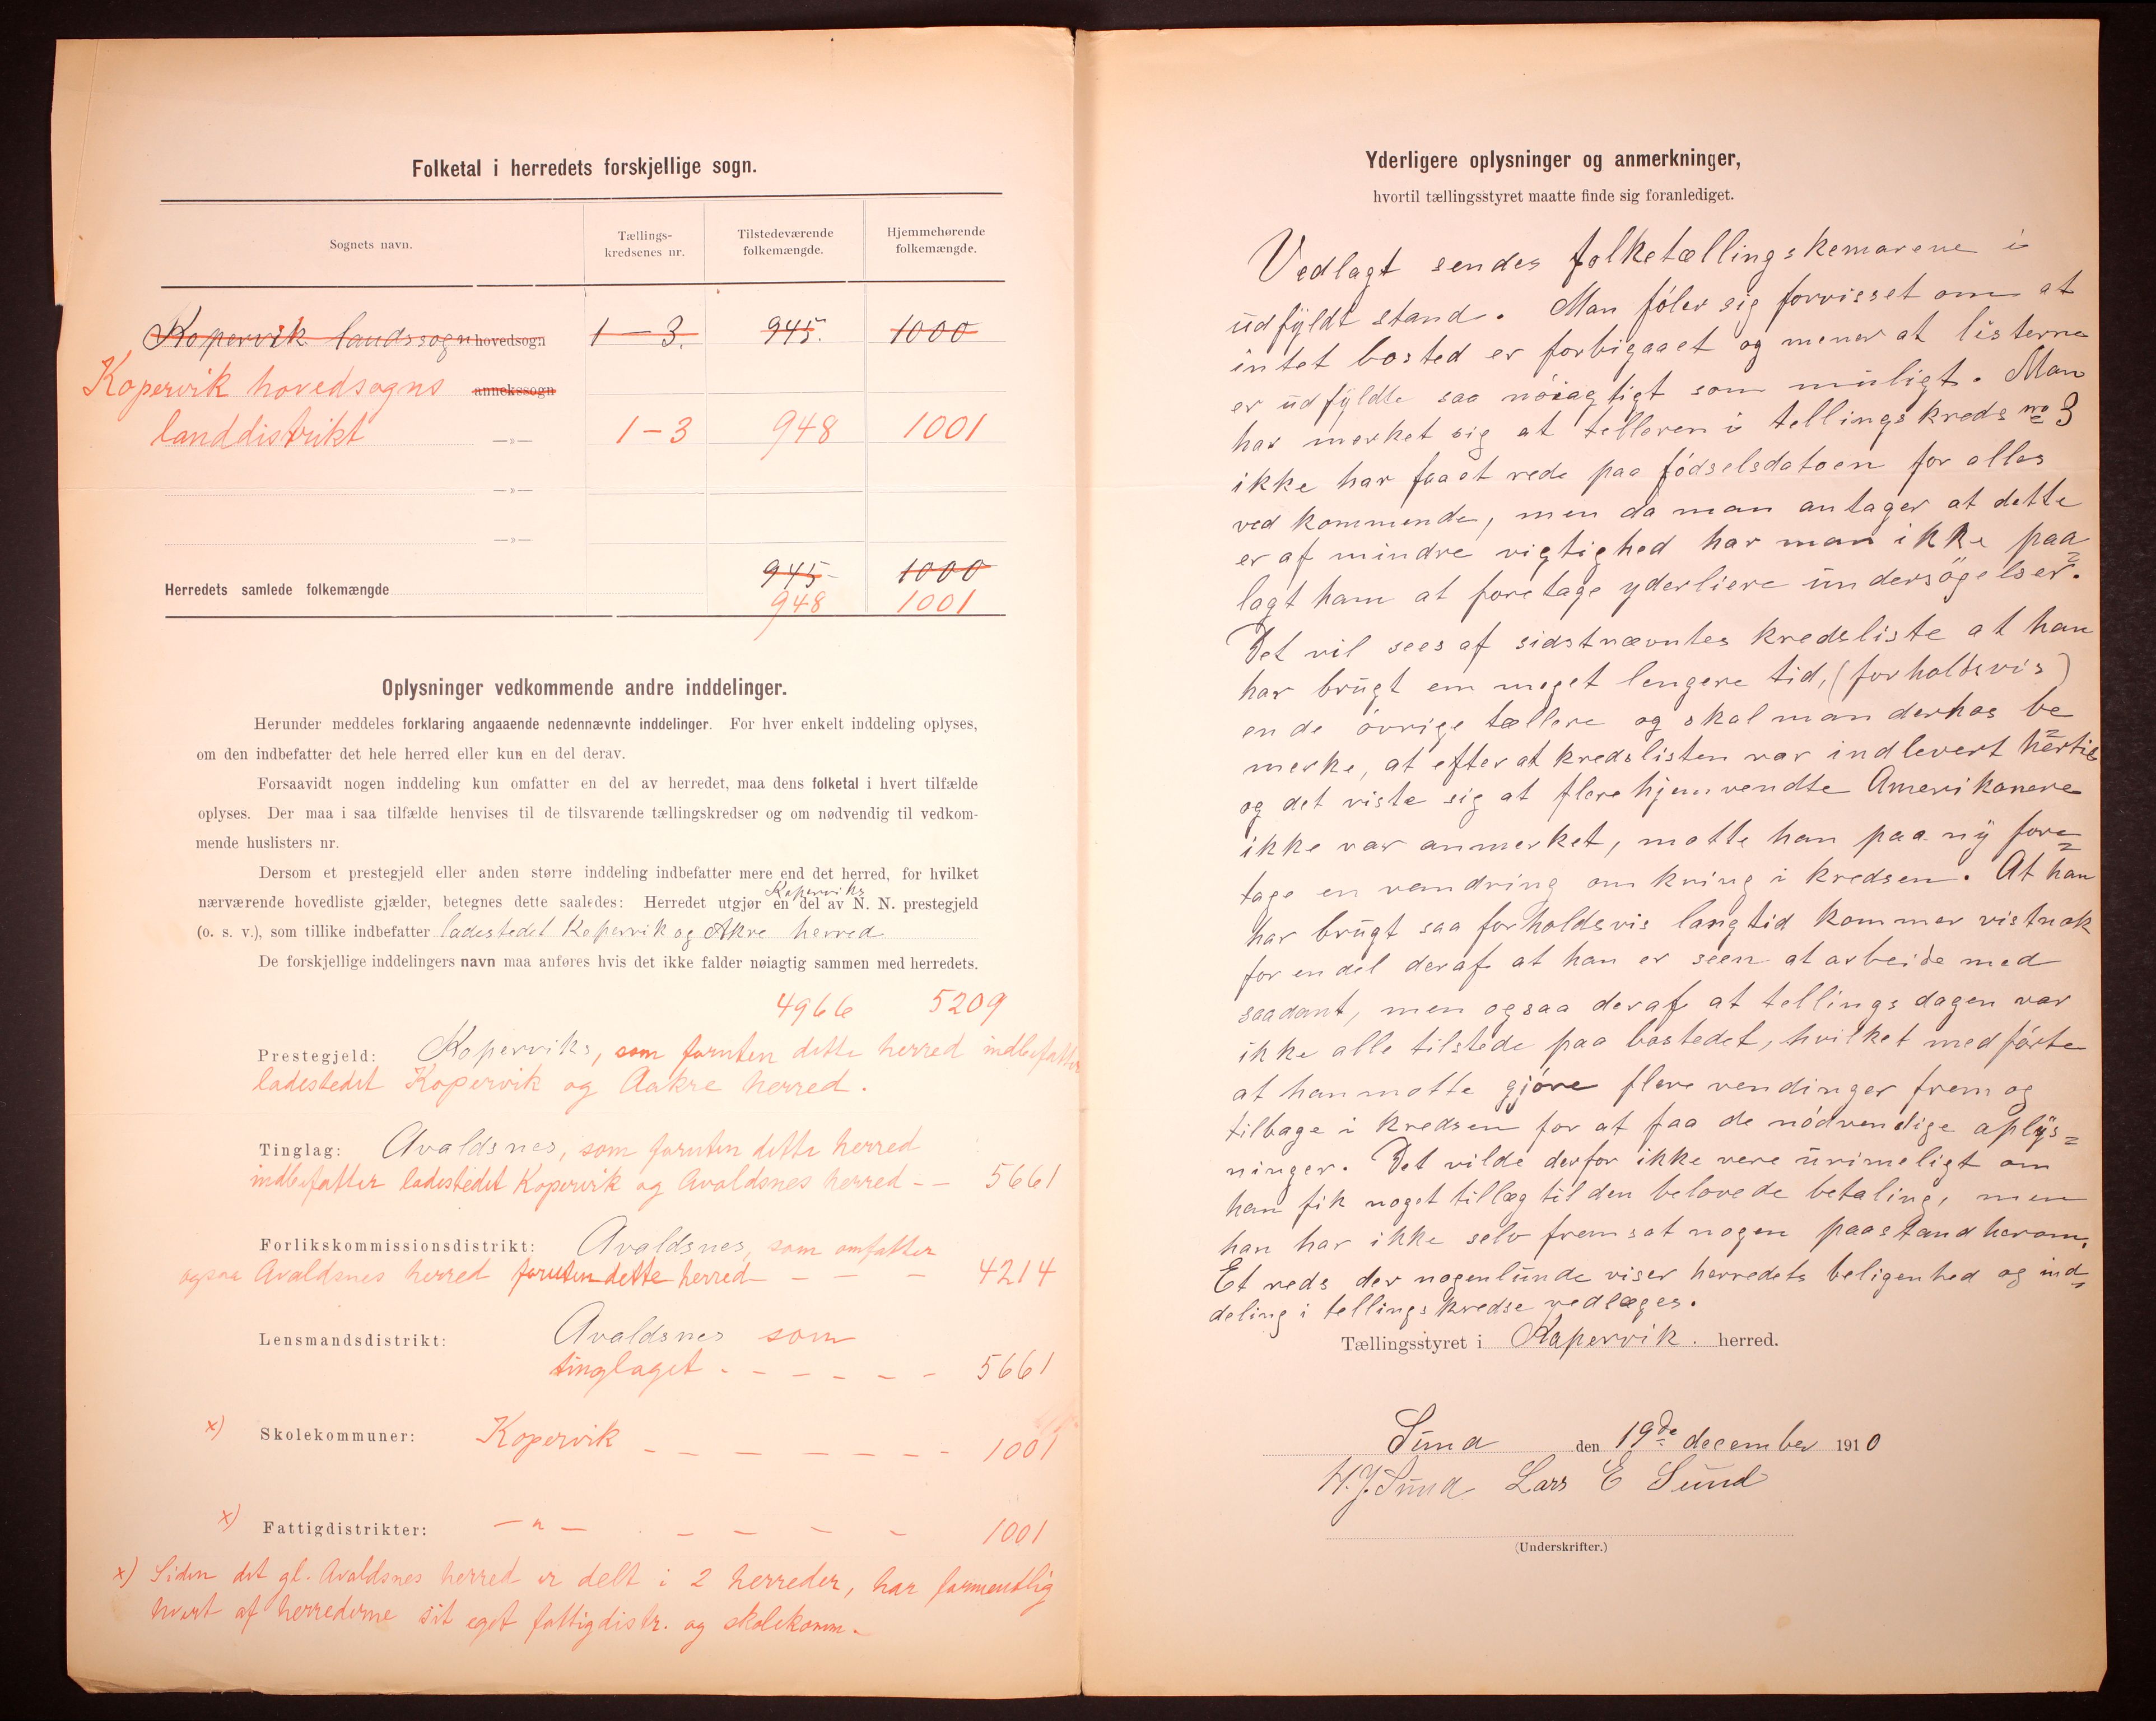 Folketal i herredets forskjellige sogn.
Sognets navn.
Tællings-
kredsenes nr.
Tilstedeværende
folkemængde.
Hjemmehørende
folkemængde.
Kopervik landssogn hovedsogn 1-3. 945. 1000
Kopervik hovedsogns annekssogn
landdistrikt —»— 1-3 948 1001
—»—
—»—
945 1000
Herredets samlede folkemængde
948 1001
Oplysninger vedkommende andre inddelinger.
Herunder meddeles forklaring angaaende nedennævnte inddelinger. For hver enkelt inddeling oplyses,
om den indbefatter det hele herred eller kun en del derav.
Forsaavidt nogen inddeling kun omfatter en del av herredet, maa dens folketal i hvert tilfælde
oplyses. Der maa i saa tilfælde henvises til de tilsvarende tællingskredser og om nødvendig til vedkom-
mende huslisters nr.
Dersom et prestegjeld eller anden større inddeling indbefatter mere end det herred, for hvilket
Koperviks
nærværende hovedliste gjælder, betegnes dette saaledes: Herredet utgjør en del av N. N. prestegjeld
(o. s. v.), som tillike indbefatter ladestedet Kopervik og Akre herred
De forskjellige inddelingers navn maa anføres hvis det ikke falder nøiagtig sammen med herredets.
4966 5209
Prestegjeld: Koperviks, som foruten dette herred indbefatter
ladestedet Kopervik og Aakre herred.
Tinglag: Avaldsnes, som foruten dette herred
indbefatter ladestedet Kopervik og Avaldsnes herred - - 5661
Forlikskommissionsdistrikt: Avaldsnes, som omfatter
ogsaa Avaldsnes herred foruten dette herred - - - 4214
Lensmandsdistrikt: Avaldsnes som
tinglaget - - - - - - 5661
x) Skolekommuner: Kopervik - - - - - - - - 1001
x) Fattigdistrikter: —"— - - - - 1001
x) Siden det gl. Avaldsnes herred er delt i 2 herreder, har formentlig
hvert af herrederne sit eget fattigdistr. og skolekomm.
Yderligere oplysninger og anmerkninger,
hvortil tællingsstyret maatte finde sig foranlediget.
Vedlagt sendes folketællingskemaene i
udfyldt stand. Man føler sig forvisset om at
intet bosted er forbigaaet og mener at listerne
er udfyldte saa nøiagtigt som muligt. Man
har merket sig at telleren i tellingskreds no 3
ikke har faaet rede paa fødselsdatoen for alles
ved kommende, men da man antager at dette
er af mindre vigtighed har man ikke paa=
lagt ham at foretage yderliere undersøgelser.
Det vil sees af sidstnævntes kredsliste at han
har brugt em meget lengere tid, (forholdsvis)
en de øvrige tællere og skal man derhos be=
merke, at efter at kredslisten var indlevert hertil
og det viste sig at flere hjemvendte Amerikanere
ikke var anmerket, motte han paa ny fore=
tage en vandring omkring i kredsen. At han
har brugt saa forholdsvis langtid kommer vistnok
for en del deraf at han er seen at arbeide med
saadant, men ogsaa deraf at tellingsdagen var
ikke alle tilstede paa bostedet, hvilket medførte
at han motte gjøre flere vendinger frem og
tilbage i kredsen for at faa de nødvendige oplys=
ninger. Det vilde derfor ikke vere urimeligt om
han fik noget tillæg til den belovede betaling, men
han har ikke selv fremsat nogen paastand herom.
Et reds der nogenlunde viser herredets beligenhed og ind=
deling i tellingskredse vedlæges.
Tællingsstyret i Kopervik herred.
Sund den 19de december 1910
H.J. Sund Lars E Sund
(Underskrifter.)